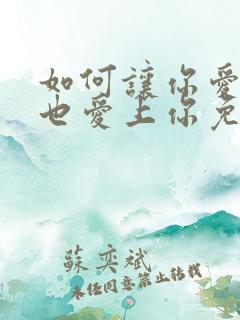 如何讓你愛
也愛上你免
蘇奕斌
未经同意禁止转载